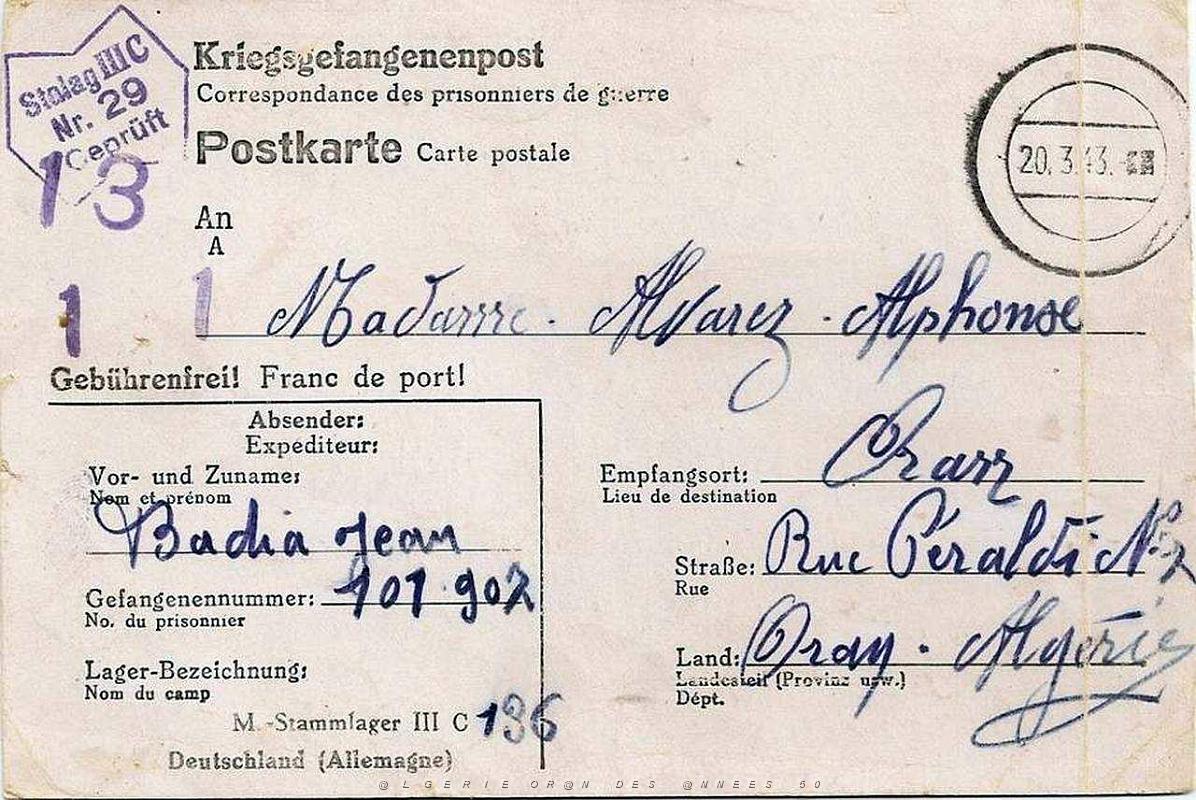 Stalag III C
Nr. 29
Geprüft
13
Kriegsgefangenenpost
Correspondance des prisonniers de guerre
Postkarte Carte postale
20.3.43.
An
A
1 1
Madame. Alvarez. Alphonse
Gebührenfrei! Franc de port!
Absender:
Expéditeur:
Vor- und Zuname:
Nom et prénom
Badia Jean
Gefangenennummer: 101.902
No. du prisonnier
Lager-Bezeichnung:
Nom du camp
M.-Stammlager III C 136
Deutschland (Allemagne)
Empfangsort: Oran
Lieu de destination
Straße: Rue Péraldi Nº 2
Rue
Land: Oran. Algérie
Landesteil (Provinz usw.)
Dépt.
@LGERIE OR@N DES @NNEES 50